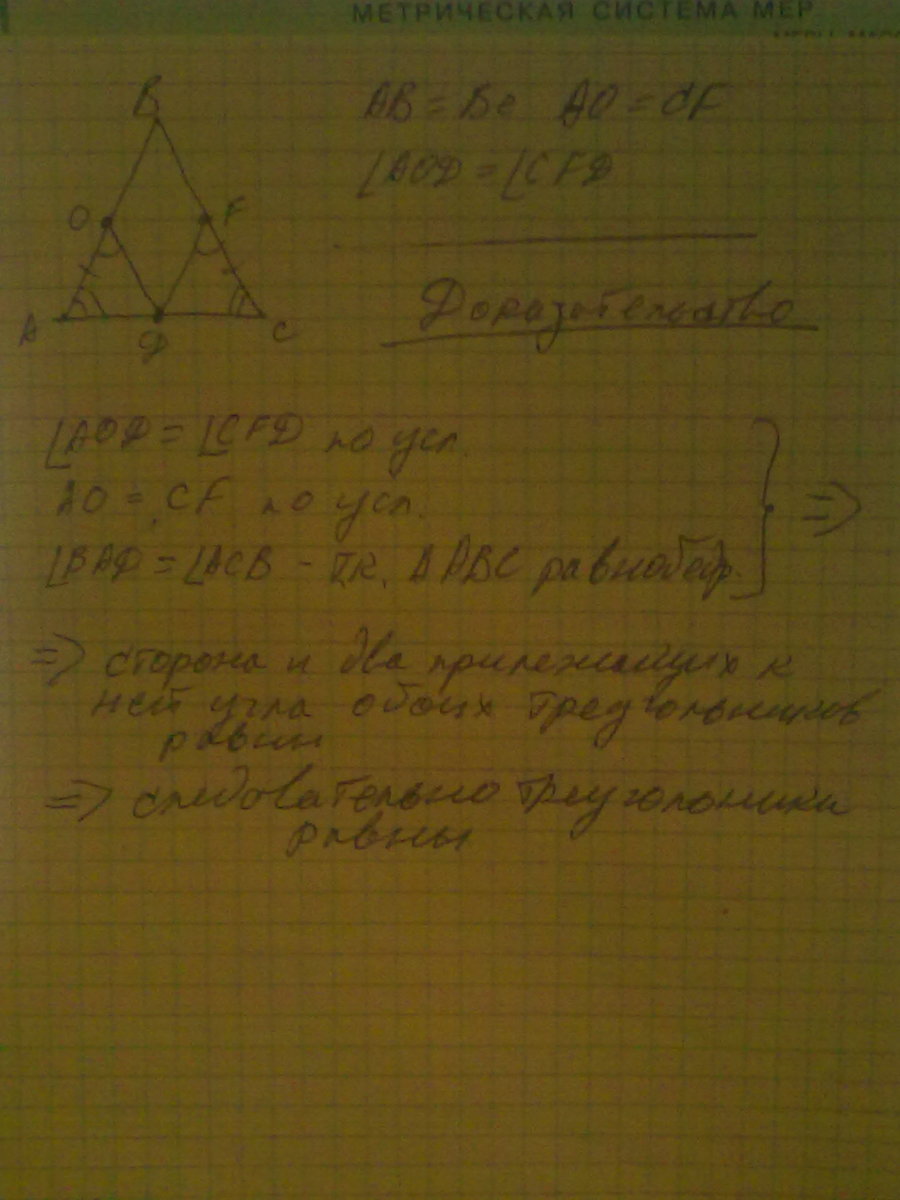 МЕТРИЧЕСКАЯ СИСТЕМА МЕР
B
AB = BC AO = CF
∠AOD = ∠CFD
O F
A D C
Доказательство
∠AOD = ∠CFD по усл.
AO = CF по усл.
∠BAD = ∠ACB - т.к. ΔABC равнобедр.
⇒
⇒ сторона и два прилежащих к
ней угла обоих треугольников
равны
⇒ следовательно треугольники
равны